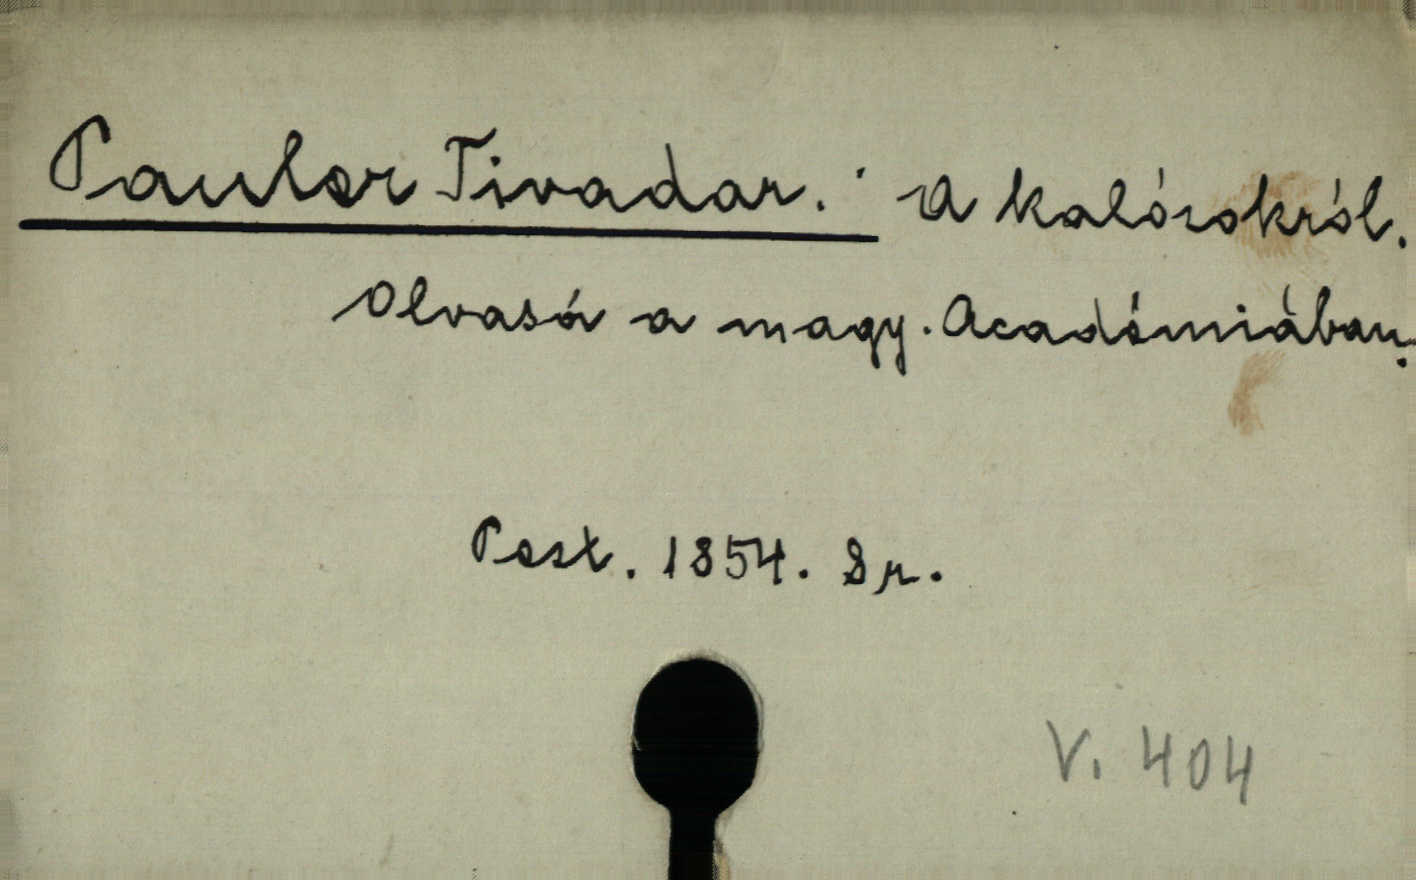 Pauler Tivadar. A kalózokról.
Olvasá a magy. Académiában.
Pest. 1854. 8r.
V. 404